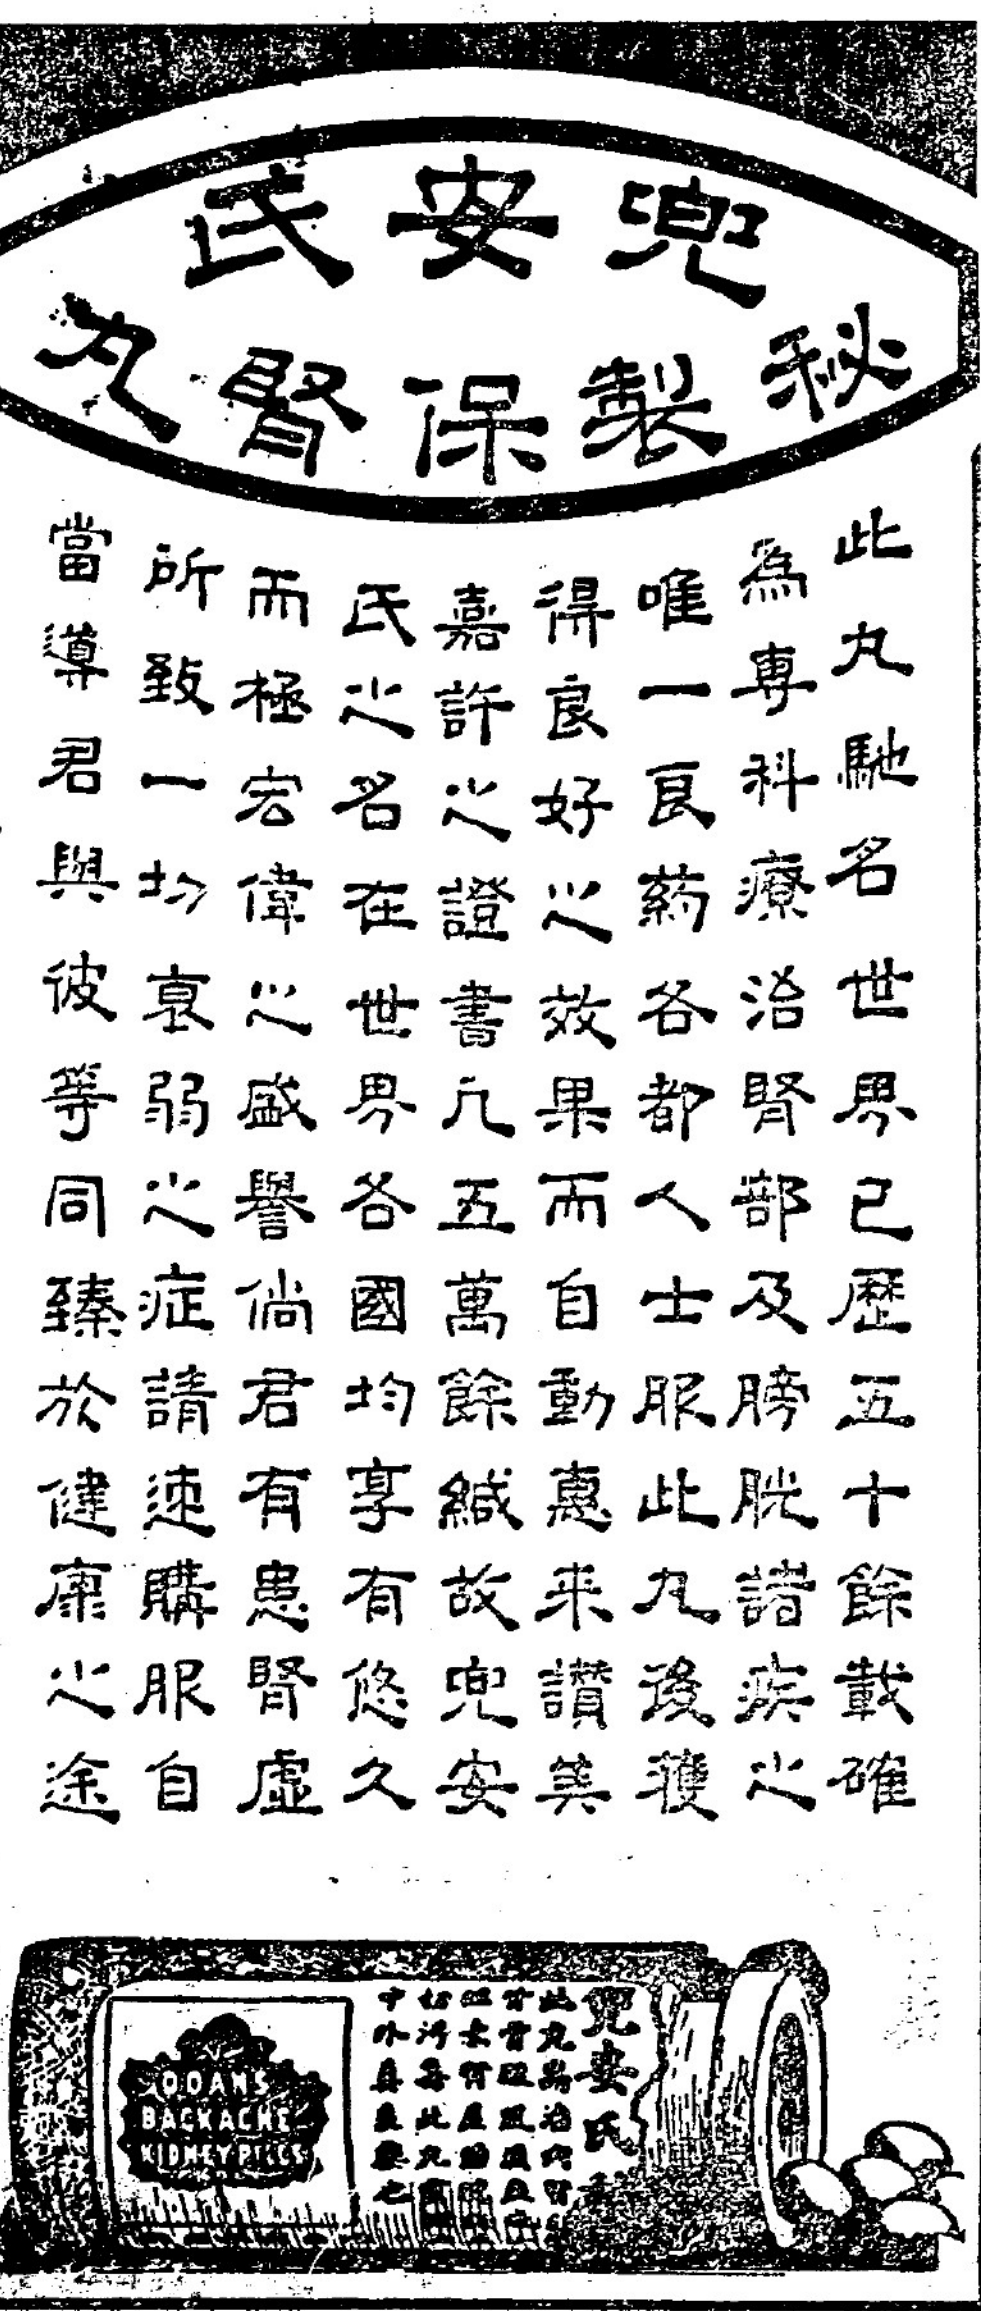 兜安氏
秘製保腎丸
此丸馳名世界已歷五十餘載確
為專科療治腎部及膀胱諸疾之
唯一良葯各都人士服此丸後獲
得良好之效果而自動惠来讃美
嘉許之證書凢五萬餘緘故兜安
氏之名在世界各國均享有悠久
而極宏偉之盛譽倘君有患腎虛
所致一切衰弱之症請速購服自
當導君與彼等同臻於健康之途
兜安氏
BACKACHE
KIDNEY PILLS